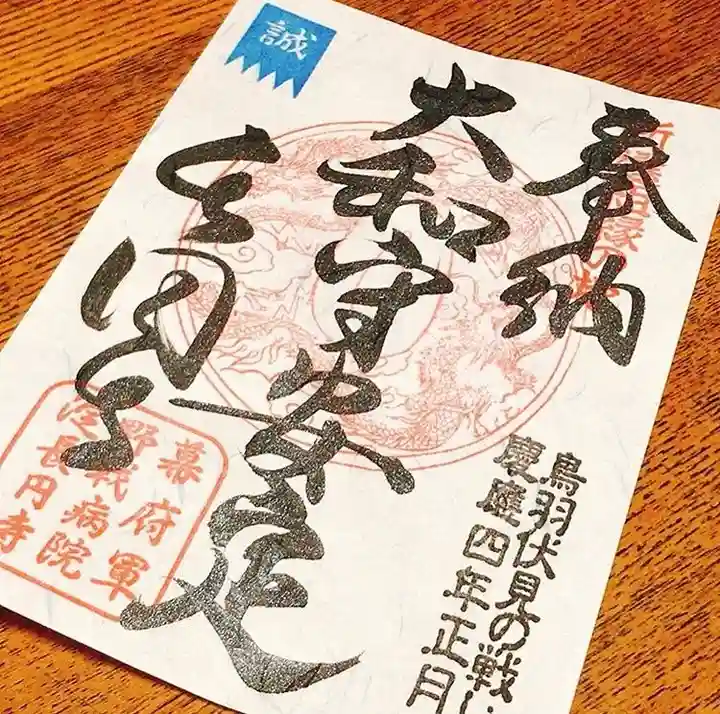 誠
奉納
鳥羽伏見の戦い
慶應四年正月
大和守安定
長円寺
幕府軍
野戦病院
淀長円寺